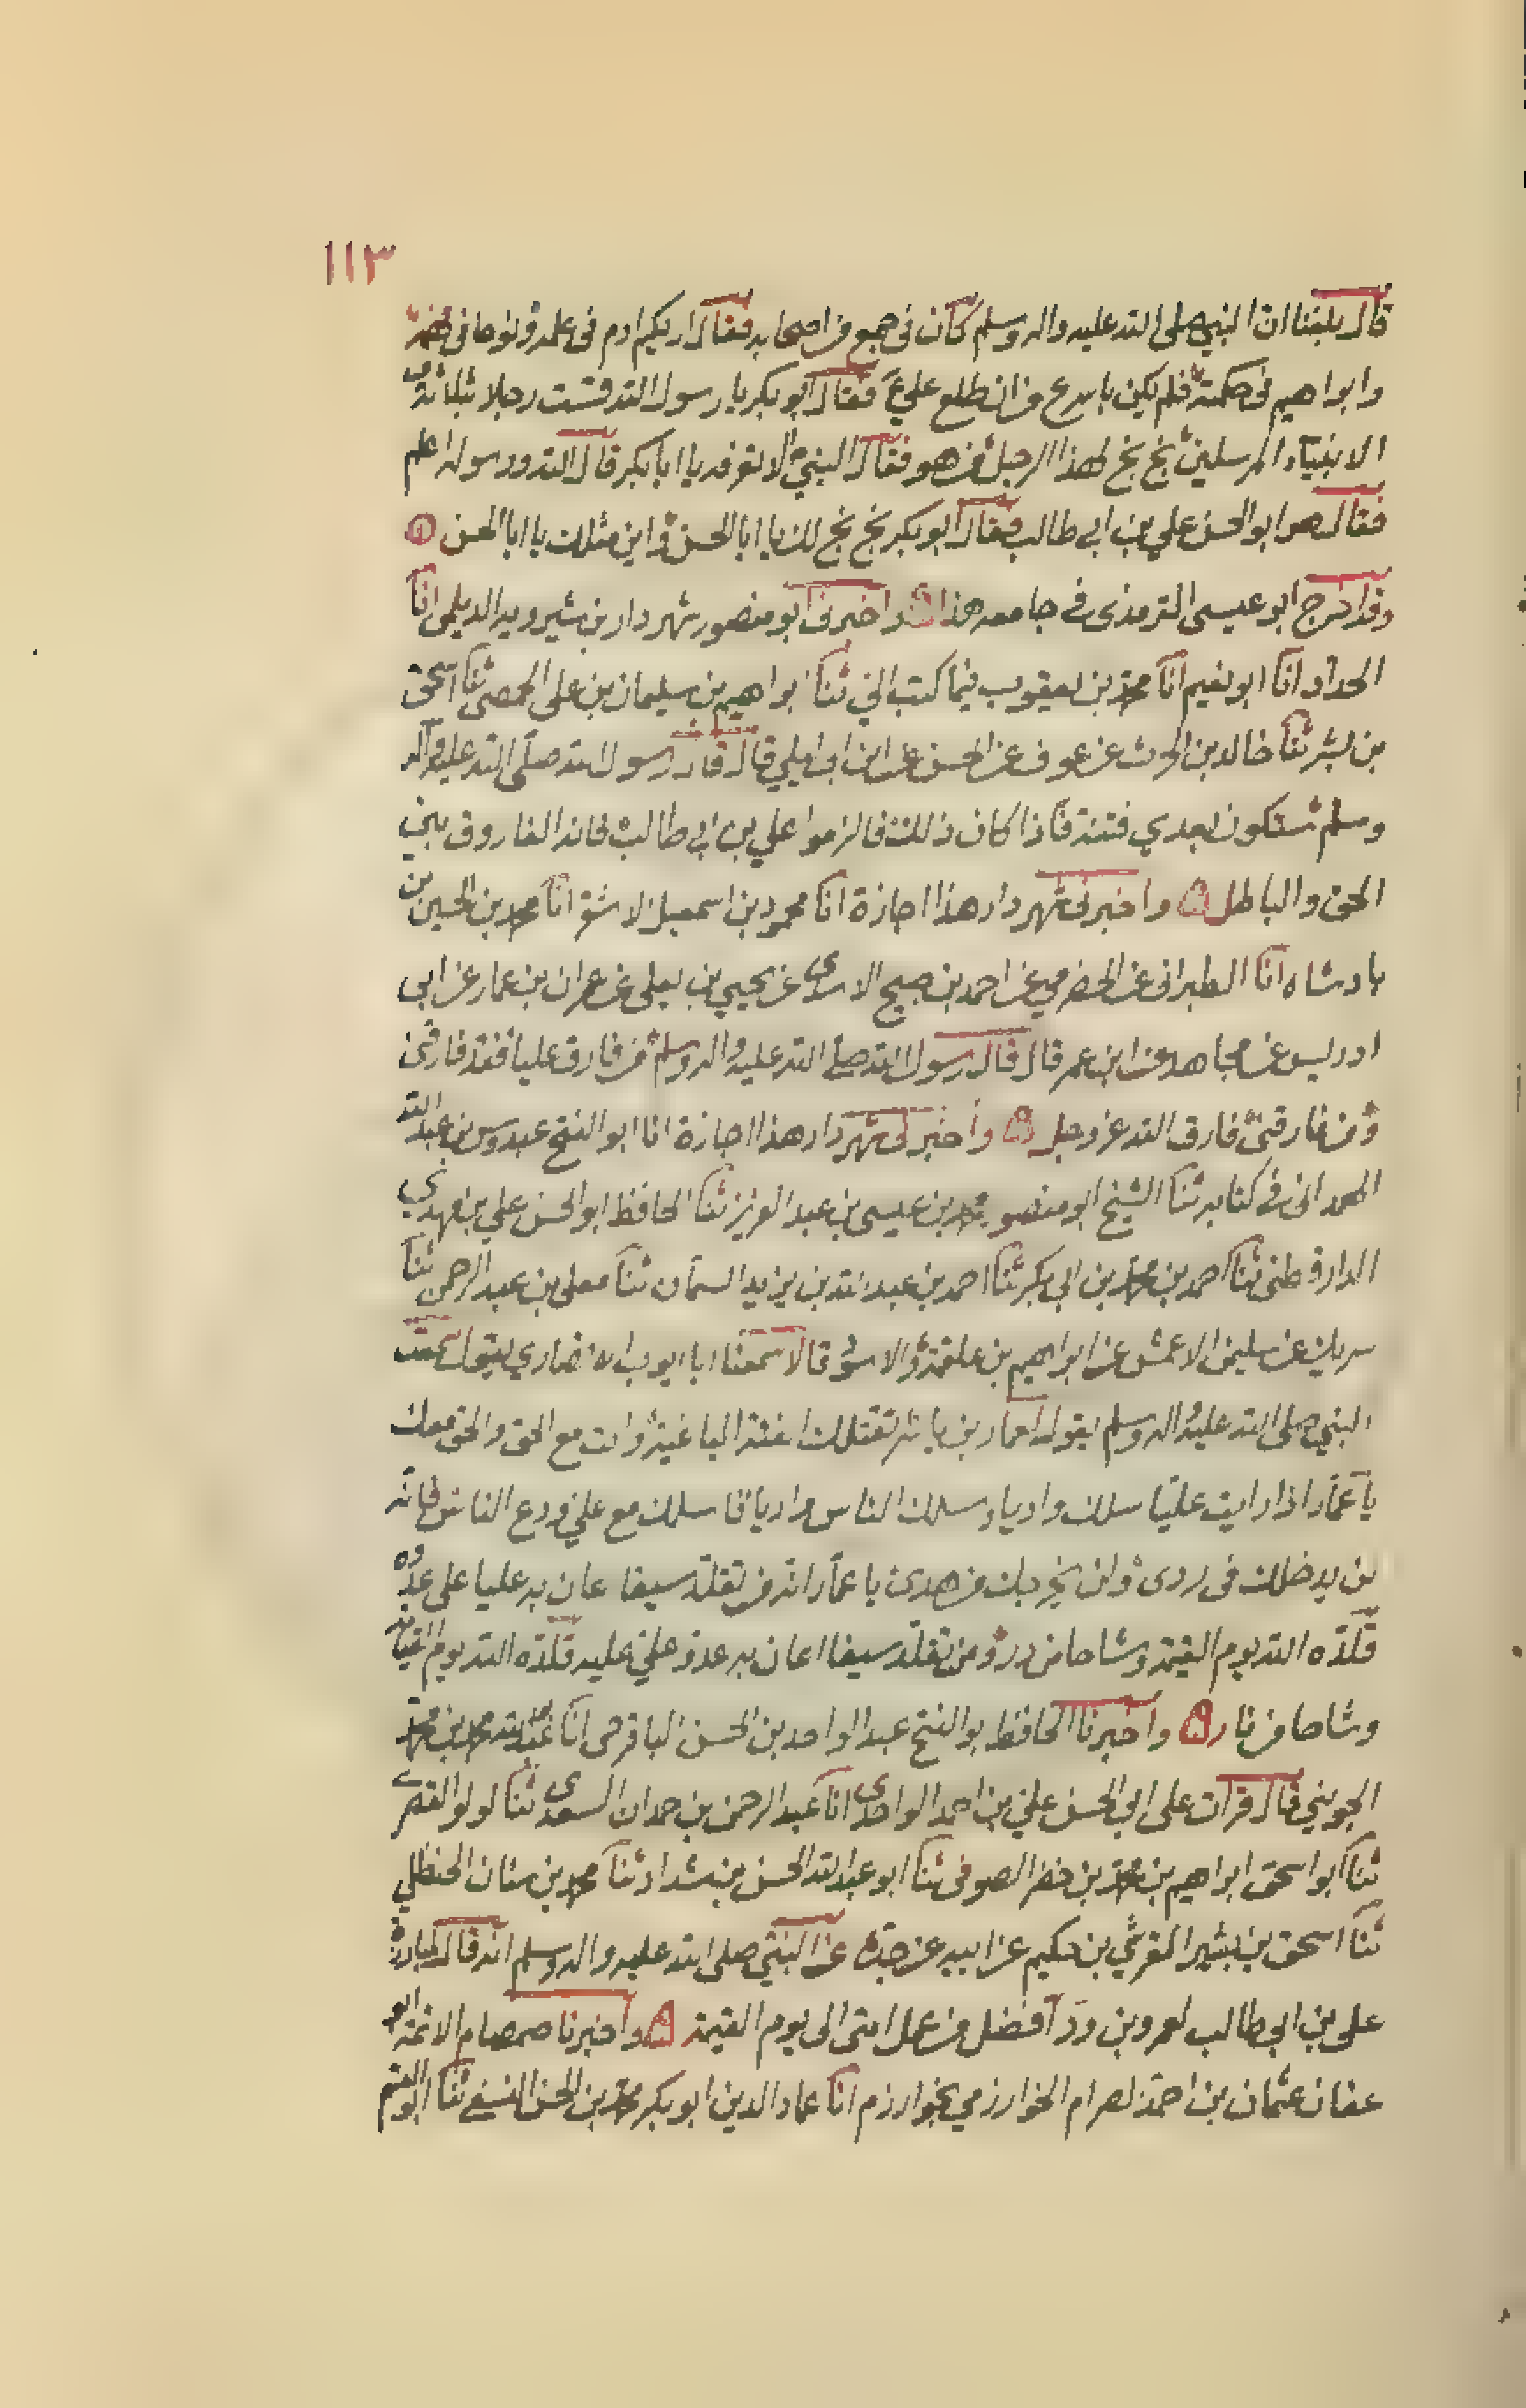 ١١٣
قال بلغنا ان النبي صلى الله عليه واله وسلم كان في جمع من اصحابه فقال اريكم ادم في علمه ونوحا في فهمه
وابراهيم في حكمته فلم يكن باسرع من ان طلع علي ع فقال ابو بكر يا رسول الله قست رجلا بثلاثة من
الانبياء المرسلين بخ بخ لهذا الرجل من هو فقال النبي الا تعرفه يا ابا بكر قال الله ورسوله اعلم
فقال هو ابو الحسن علي بن ابي طالب فقال ابو بكر بخ بخ لك يا ابا الحسن واين مثلك يا ابا الحسن
وقد اخرج ابو عيسى الترمذى في جامعه هذا واخبرني ابو منصور شهردار بن شيرويه الديلمى انا
الحداد انا ابو نعيم انا محمد بن يعقوب فيما كتب الي ثنا ابراهيم بن سليمان بن على الحمصي ثنا اسحق
بن بشر ثنا خالد بن الحرث عن عوف عن الحسن عن ابن ابى ليلي قال قال رسول الله صلى الله عليه واله
وسلم ستكون بعدي فتنة فاذا كان ذلك فالزموا علي بن ابي طالب فانه الفاروق بين
الحق والباطل واخبرني شهردار هذا اجازة انا محمود بن اسمعيل الاشقر انا محمد بن الحسين بن
بادشاه انا الطبرانى عن الحضرمي عن احمد بن صبيح الاسدي عن يحيي بن يعلى عن عمران بن عمار عن ابى
ادريس عن مجاهد عن ابن عمر قال قال رسول الله صلى الله عليه واله وسلم من فارق عليا فقد فارقنى
ومن فارقنى فارق الله عز وجل واخبرني شهردار هذا اجازة انا ابو الفتح عبدوس بن عبد الله
الهمدانى في كتابه ثنا الشيخ ابو منصور محمد بن عيسى بن عبد العزيز ثنا الحافظ ابو الحسن علي بن مهدي
الدارقطنى ثنا احمد بن محمد بن ابي بكر ثنا احمد بن عبد الله بن يزيد السمان ثنا معلى بن عبد الرحمن ثنا
شريك عن سليمن الاعمش عن ابراهيم بن علقمة والاسود قالا سمعنا ابا ايوب الانصاري يقول سمعت
النبي صلى الله عليه واله وسلم يقول لعمار بن ياسر تقتلك الفئة الباغية وانت مع الحق والحق معك
يا عمار اذا رايت عليا سلك واديا وسلك الناس واديا فاسلك مع علي ودع الناس فانه
لن يدخلك في ردى ولن يخرجك من هدى يا عمار انه من تقلد سيفا اعان به عليا على عدوه
قلده الله يوم القيمة وشاحا من در ومن تقلد سيفا اعان به عدو علي عليه قلده الله يوم القيامة
وشاحا من نار واخبرنا الحافظ ابو الفتح عبد الواحد بن الحسن الباقرحى انا محمد بن محمد
الجويني قال قرات على ابي الحسن علي بن احمد الواحدى انا عبد الرحمن بن حمدان السعدى ثنا لولو القصرى
ثنا ابو اسحق ابراهيم بن محمد بن خضر الصوفى ثنا ابو عبد الله الحسن بن شداد ثنا محمد بن سنان الحنظلي
ثنا اسحق بن بشير القرشي بن حكيم عن ابيه عن جده عن النبي صلى الله عليه واله وسلم انه قال لمبارزة
على بن ابي طالب لعمرو بن ود افضل من عمل امتى الى يوم القيمة واخبرنا صمصام الائمة ابو
عفان عثمان بن احمد الصرام الخوارزمي بخوارزم انا عماد الدين ابو بكر محمد بن الحسن النسفي ثنا ابو القسم